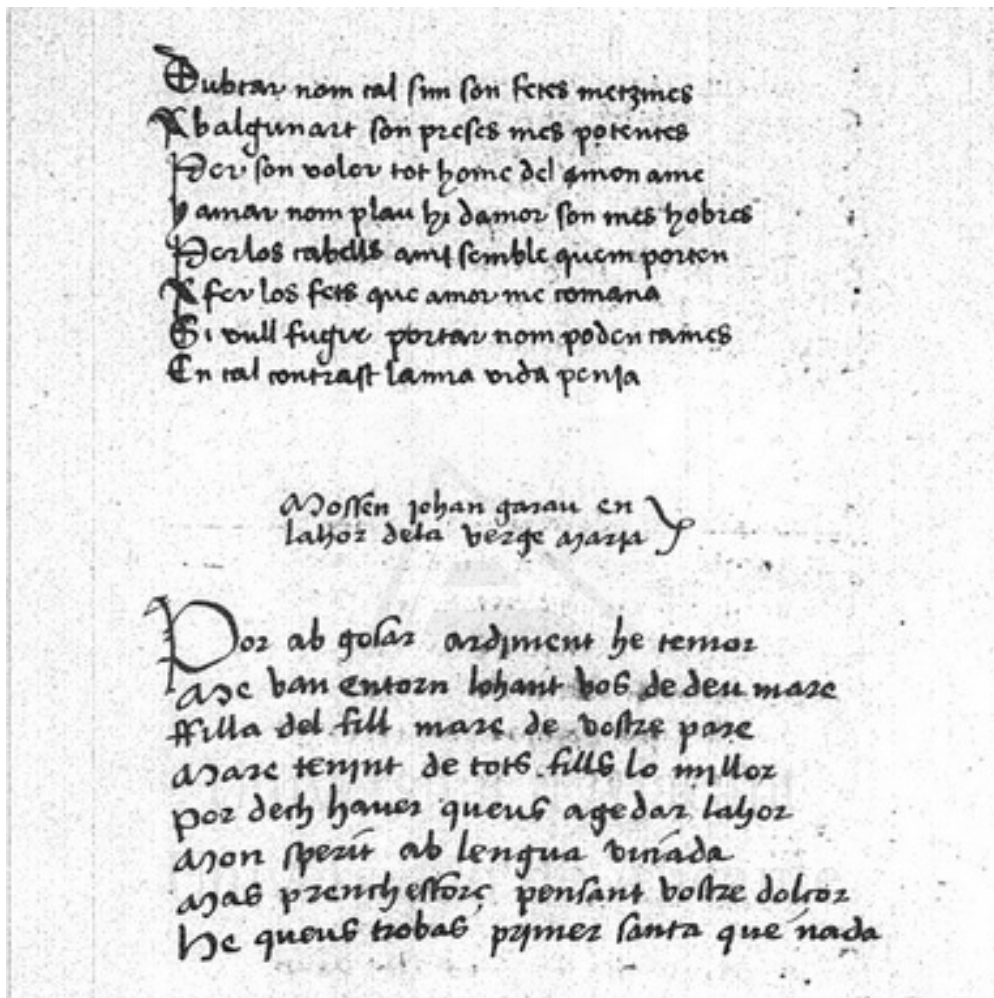 Dubtar nom cal sim son fetes metzines
Ab algun art son preses mes potentes
Per son voler tot home del mon ame
y amar nom plau hi damor son mes hobres
Per los cabells amj semble quem porten
A fer los fets que amor me comana
Si vull fugir portar nom poden cames
En tal contrast la mia vida penja
Mossen johan garau en
lahor dela verge maria
Por ab gosar ardjment he temor
Me van entorn lohant vos de deu mare
ffilla del fill mare de vostre pare
Mare tenjnt de tots fills lo mjllor
Por dech haver queus age dar lahor
Mon sperit ab lengua viciada
Mas prench esforç pensant vostre dolçor
He queus trobas prjmer santa que nada